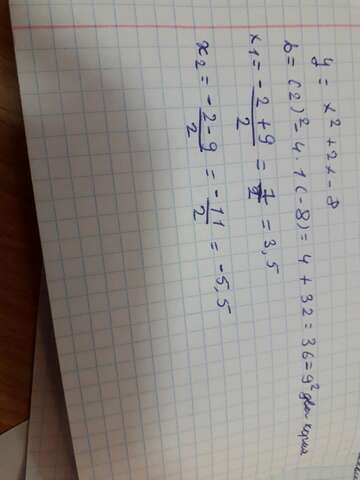 y = x² + 2x - 8
D = (2)² - 4 · 1 (-8) = 4 + 32 = 36 = 9² два корня
x₁ = \frac{-2+9}{2} = \frac{7}{2} = 3,5
x₂ = \frac{-2-9}{2} = \frac{-11}{2} = -5,5